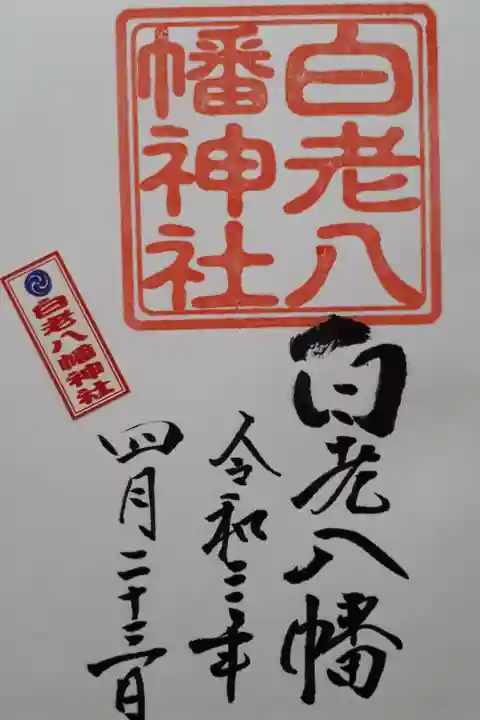 白老八
幡神社
白老八幡神社
白老八幡
令和三年
四月二十三日